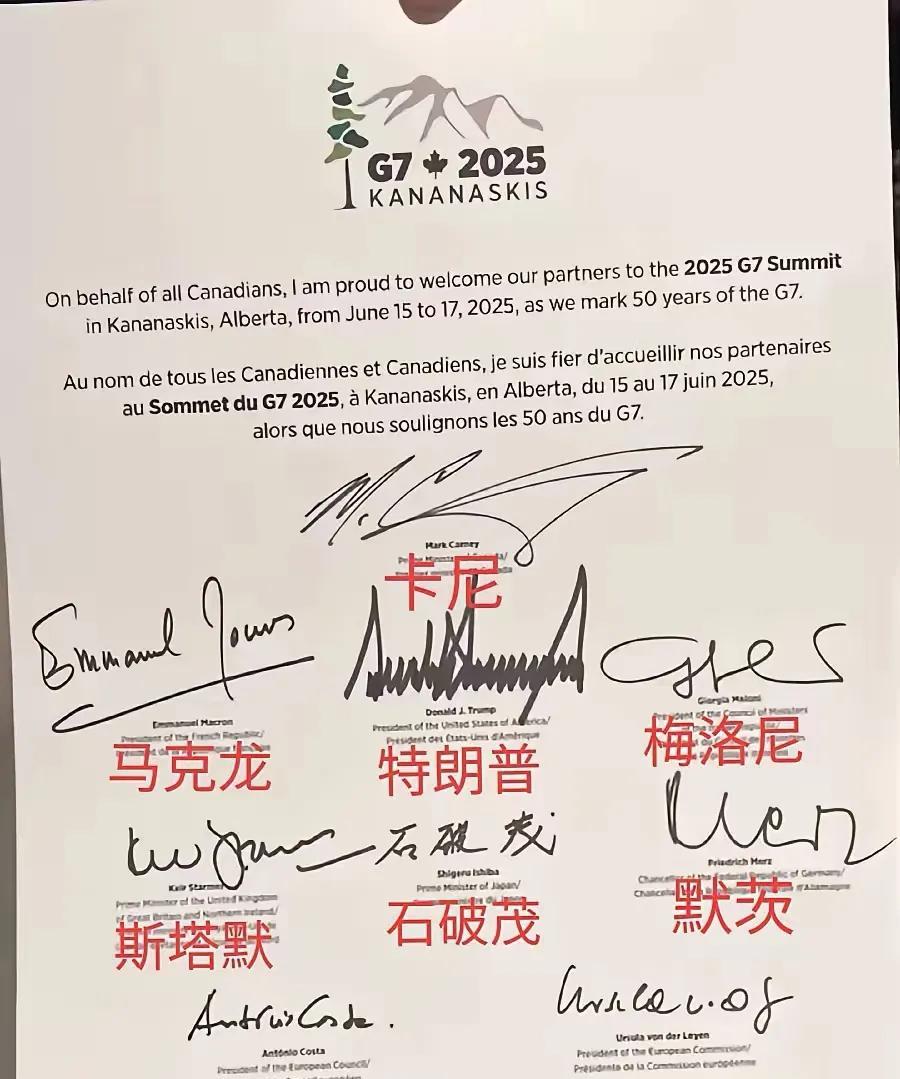 G7 2025
KANANASKIS
On behalf of all Canadians, I am proud to welcome our partners to the 2025 G7 Summit
in Kananaskis, Alberta, from June 15 to 17, 2025, as we mark 50 years of the G7.
Au nom de tous les Canadiennes et Canadiens, je suis fier d'accueillir nos partenaires
au Sommet du G7 2025, à Kananaskis, en Alberta, du 15 au 17 juin 2025,
alors que nous soulignons les 50 ans du G7.
M. C
Mark Carney
卡尼
Emmanuel
Emmanuel Macron
President of the French Republic/
马克龙
Donald J. Trump
President of the United States of America/
Président des États-Unis d'Amérique
特朗普
Giorgia Meloni
President of the Council of Ministers
梅洛尼
Keir Starmer
Prime Minister of the United Kingdom
of Great Britain and Northern Ireland/
斯塔默
石破茂
Shigeru Ishiba
Prime Minister of Japan/
石破茂
Merz
Friedrich Merz
Chancellor of the Federal Republic of Germany/
默茨
António Costa
António Costa
President of the European Council/
Ursula
Ursula von der Leyen
President of the European Commission/
Présidente de la Commission européenne